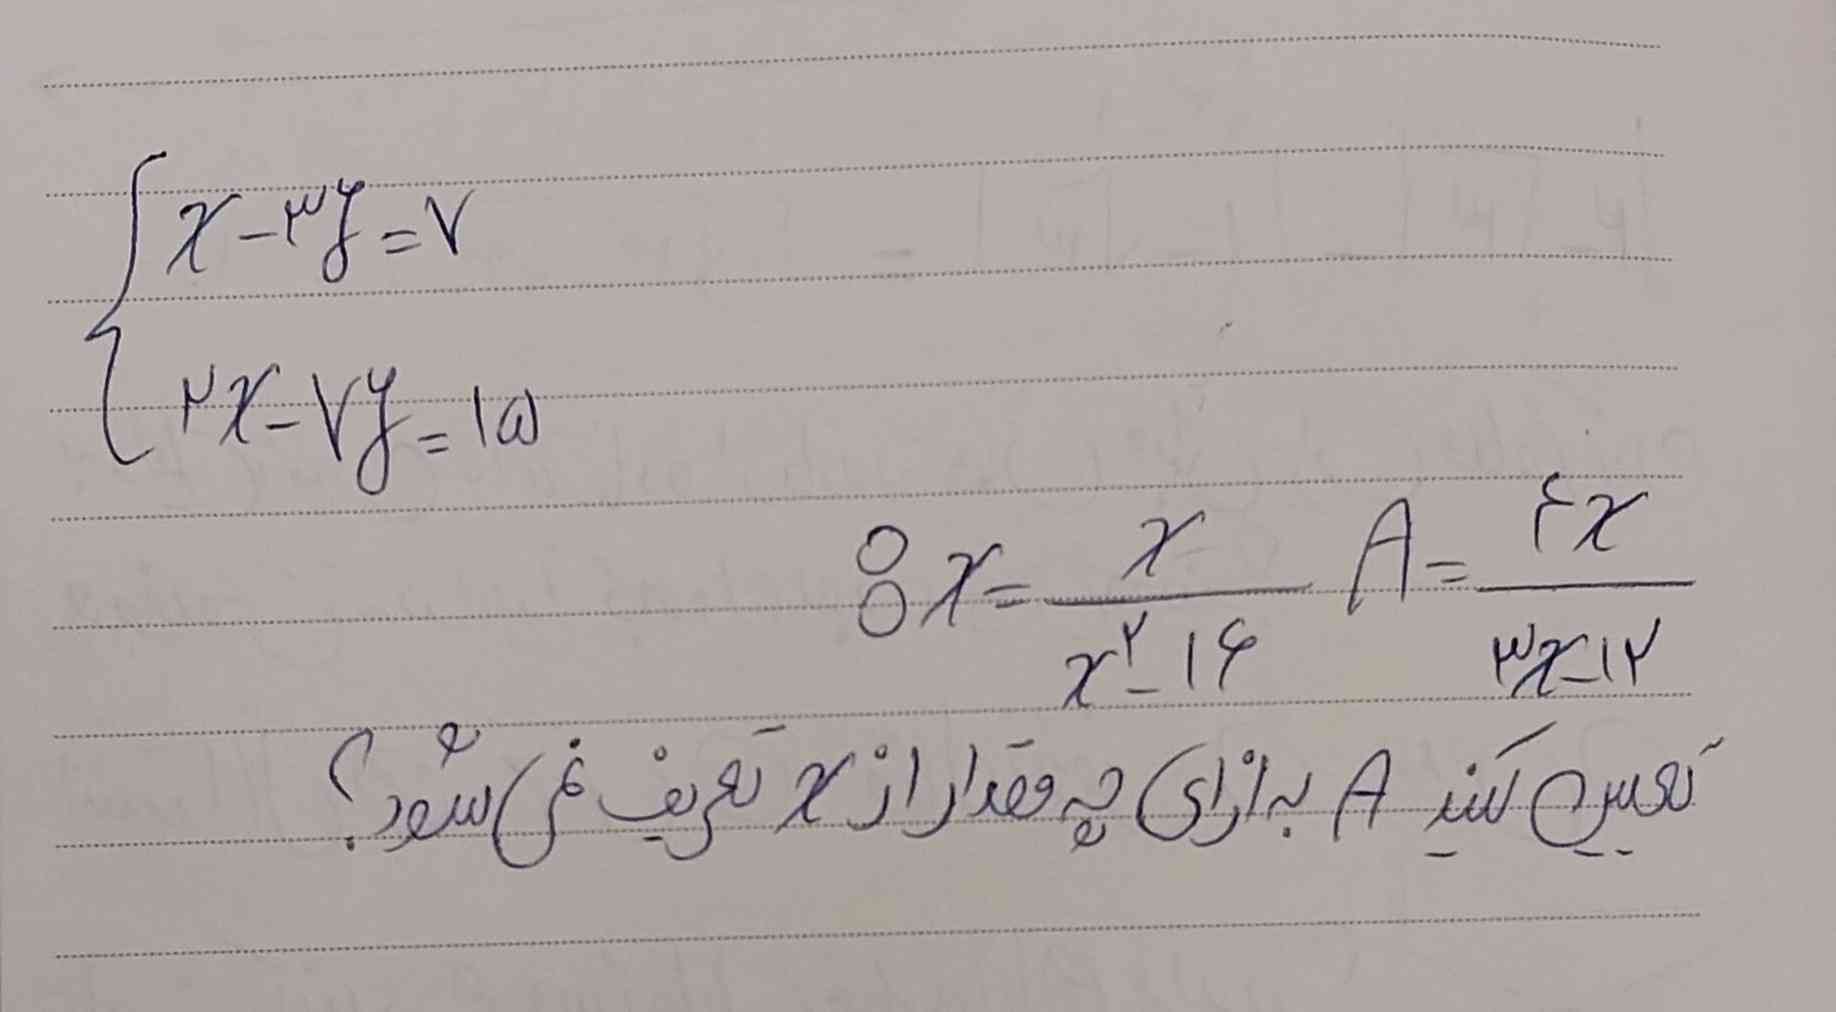 x - ۳y = ۷
۲x - ۷y = ۱۵
: x = x / x^۲ - ۱۶   A = ۴x / ۳x - ۱۲
تعیین کنید A به ازای چه مقدار از x تعریف نمی شود؟